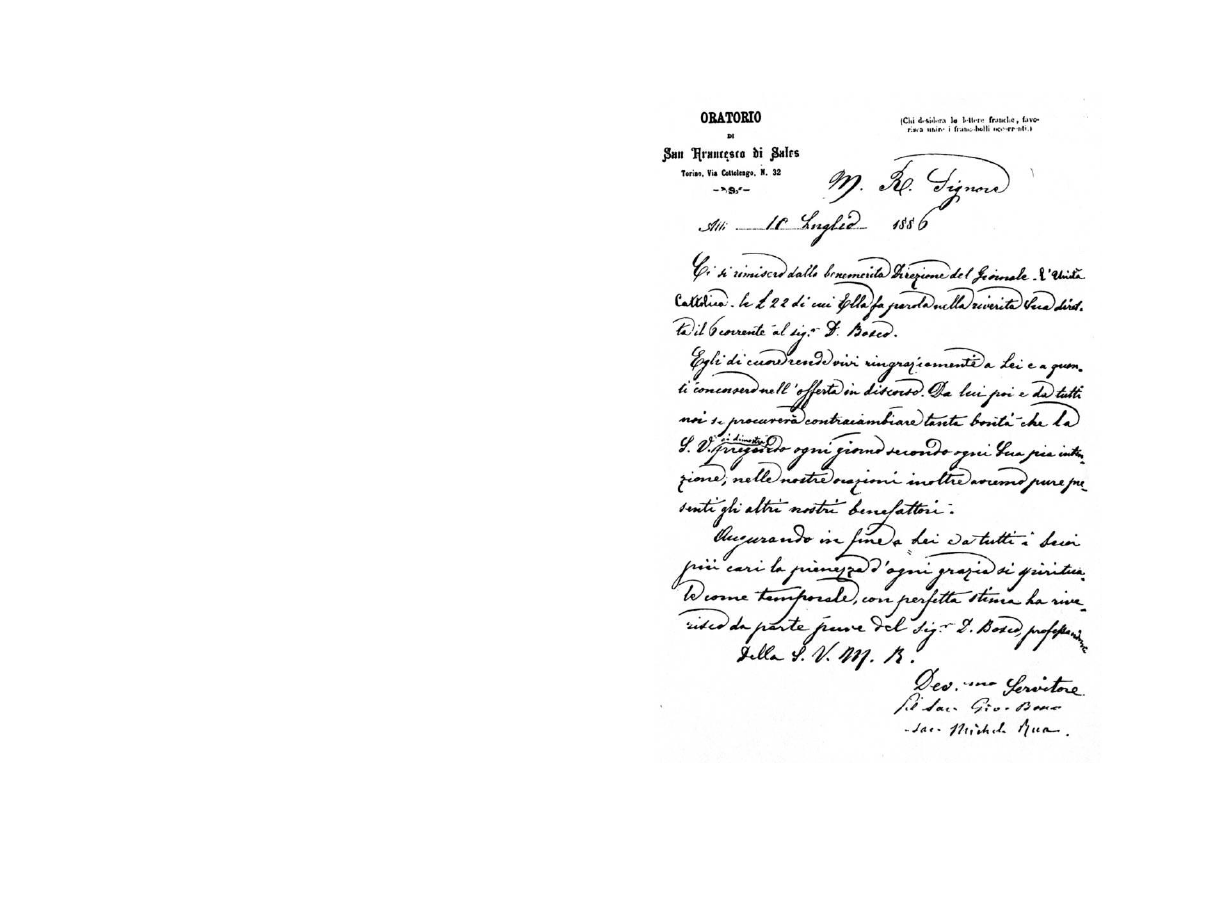 ORATORIO
DI
San Francesco di Sales
Torino, Via Cottolengo, N. 32
(Chi desidera le lettere franche, favo-
risca unire i franco-bolli occorrenti.)
M. R. Signore
Alli 10 Luglio 1886
Ci si rimisero dallo benemerita Direzione del Giornale - l'Unità
Cattolica - le £ 22 di cui Ella fa parola nella riverita Sua diret-
ta il 6 corrente al sig.r D. Bosco.
Egli di cuore rende vivi ringraziamenti a Lei e a quan-
ti concorsero nell'offerta in discorso. Da lui poi e da tutti
noi si procurerà contraccambiare tanta bontà che la
S. V. si dimostrò pregando ogni giorno secondo ogni Sua pia inten-
zione, nelle nostre orazioni inoltre avremo pure pre-
senti gli altri nostri benefattori.
Augurando in fine a Lei e a tutti i Suoi
più cari la pienezza d'ogni grazia sì spiritua-
le come temporale, con perfetta stima la rive-
risco da parte pure del sig.r D. Bosco, professandomi
Della S. V. M. R.
Dev.mo Servitore
pel Sac. Gio. Bosco
Sac. Michele Rua.